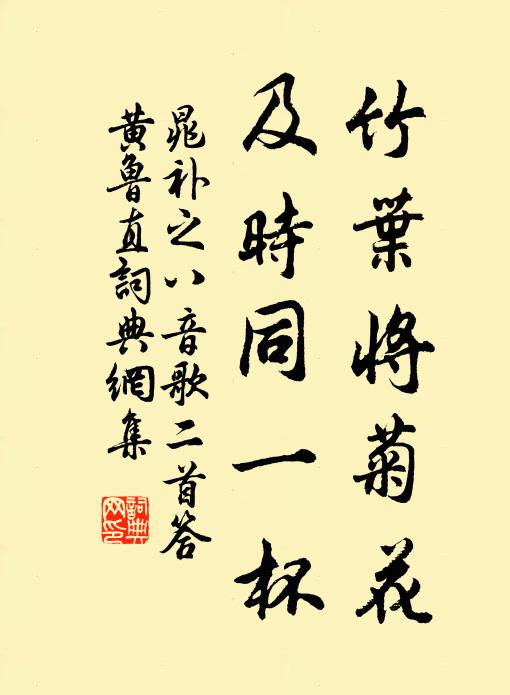 竹葉將菊花
及時同一杯
晁补之八音歌二首答
黄魯直詞典網集
詞典网印